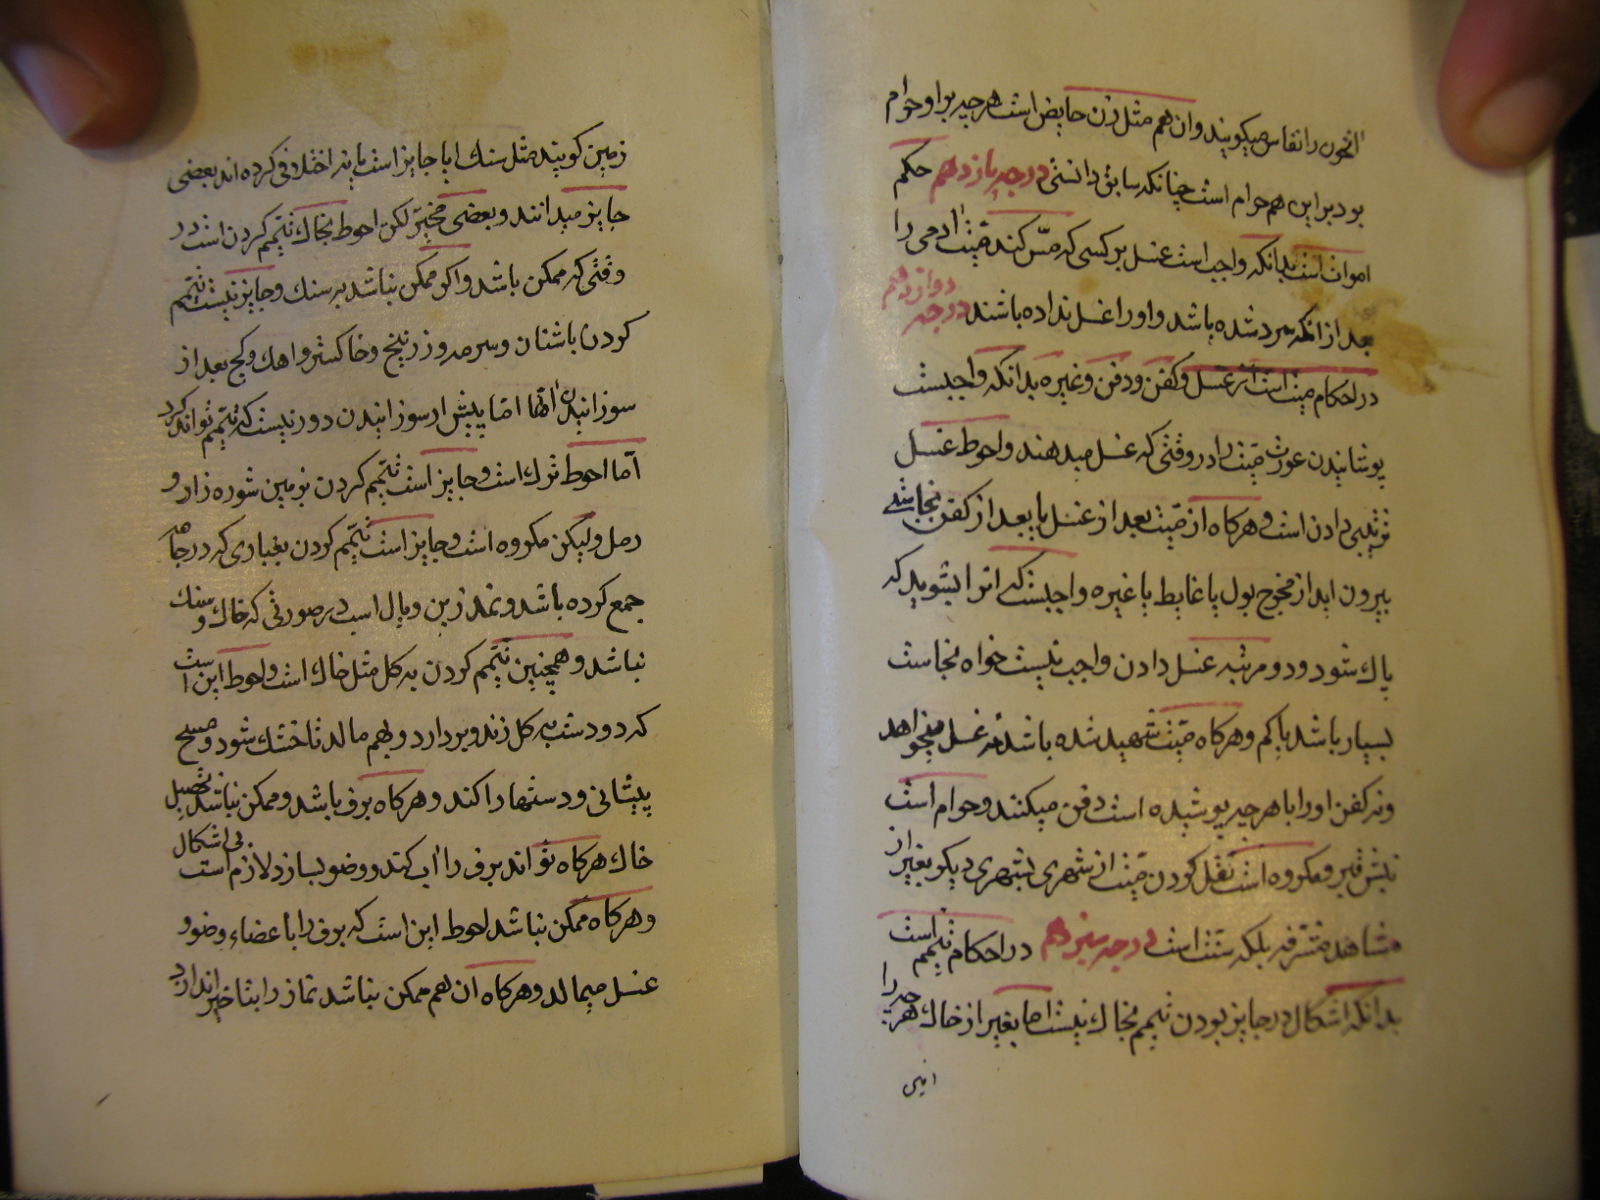 الخون را نفاس میکویند و ان هم مثل زن حایض است هر چه بر او حرام
بود بر این هم حرام است چنانکه سابق دانستی درجه یازدهم حکم
اموات است بدانکه واجب است غسل بر کسی که مس کند میت ادمی را
بعد از انکه سرد شده باشد و او را غسل نداده باشند درجه دوازدهم
در احکام میت است از غسل و کفن و دفن و غیره بدانکه واجبست
پوشانیدن عورت میت را در وقتی که غسل میدهند و احوط غسل
ترتیبی دادن است و هرکاه از میت بعد از غسل یا بعد از کفن نجاستی
بیرون اید از مخرج بول یا غایط یا غیره واجبست که انرا بشویند که
پاک شود و دو مرتبه غسل دادن واجب نیست خواه نجاست
بسیار باشد یا کم و هرکاه میت شهید شده باشد نه غسل میخواهد
و نه کفن او را با هر چه پوشیده است دفن میکنند و حرام است
نبش قبر و مکروه است نقل کردن میت از شهری بشهری دیکر بغیر از
مشاهد مشرفه بلکه سنت است درجه سیزدهم در احکام تیمم است
بدانکه اشکال در جایز بودن تیمم بخاک نیست اما بغیر از خاک هر چه را
زمین کویند مثل سنک ایا جایز است یا نه اختلاف کرده اند بعضی
جایز میدانند و بعضی مخیر لکن احوط بخاک تیمم کردن است در
وقتی که ممکن باشد و اکر ممکن نباشد به سنک و جایز نیست تیمم
کردن باشنان و سرمه و زرنیخ و خاکستر و اهک و کج بعد از
سوزانیدن انها اما پیش از سوزانیدن دور نیست که تیمم تواند کرد
اما احوط ترک است و جایز است تیمم کردن بزمین شوره زار و
رمل و لیکن مکروه است و جایز است تیمم کردن بغباری که در جامه
جمع کرده باشد و نمد زین و یال اسب در صورتی که خاک و سنک
نباشد و همچنین تیمم کردن به کل مثل خاک است و احوط این است
که دو دست به کل زند و بردارد و بهم مالد تا خشک شود و مسح
پیشانی و دستها را کند و هرکاه برف باشد و ممکن نباشد تحصیل
خاک هرکاه تواند برف را اب کند و وضو بسازد لازم است بی اشکال
و هرکاه ممکن نباشد احوط این است که برف را با عضاء وضو و
غسل میمالد و هرکاه ان هم ممکن نباشد نماز را بتاخیر اندازد